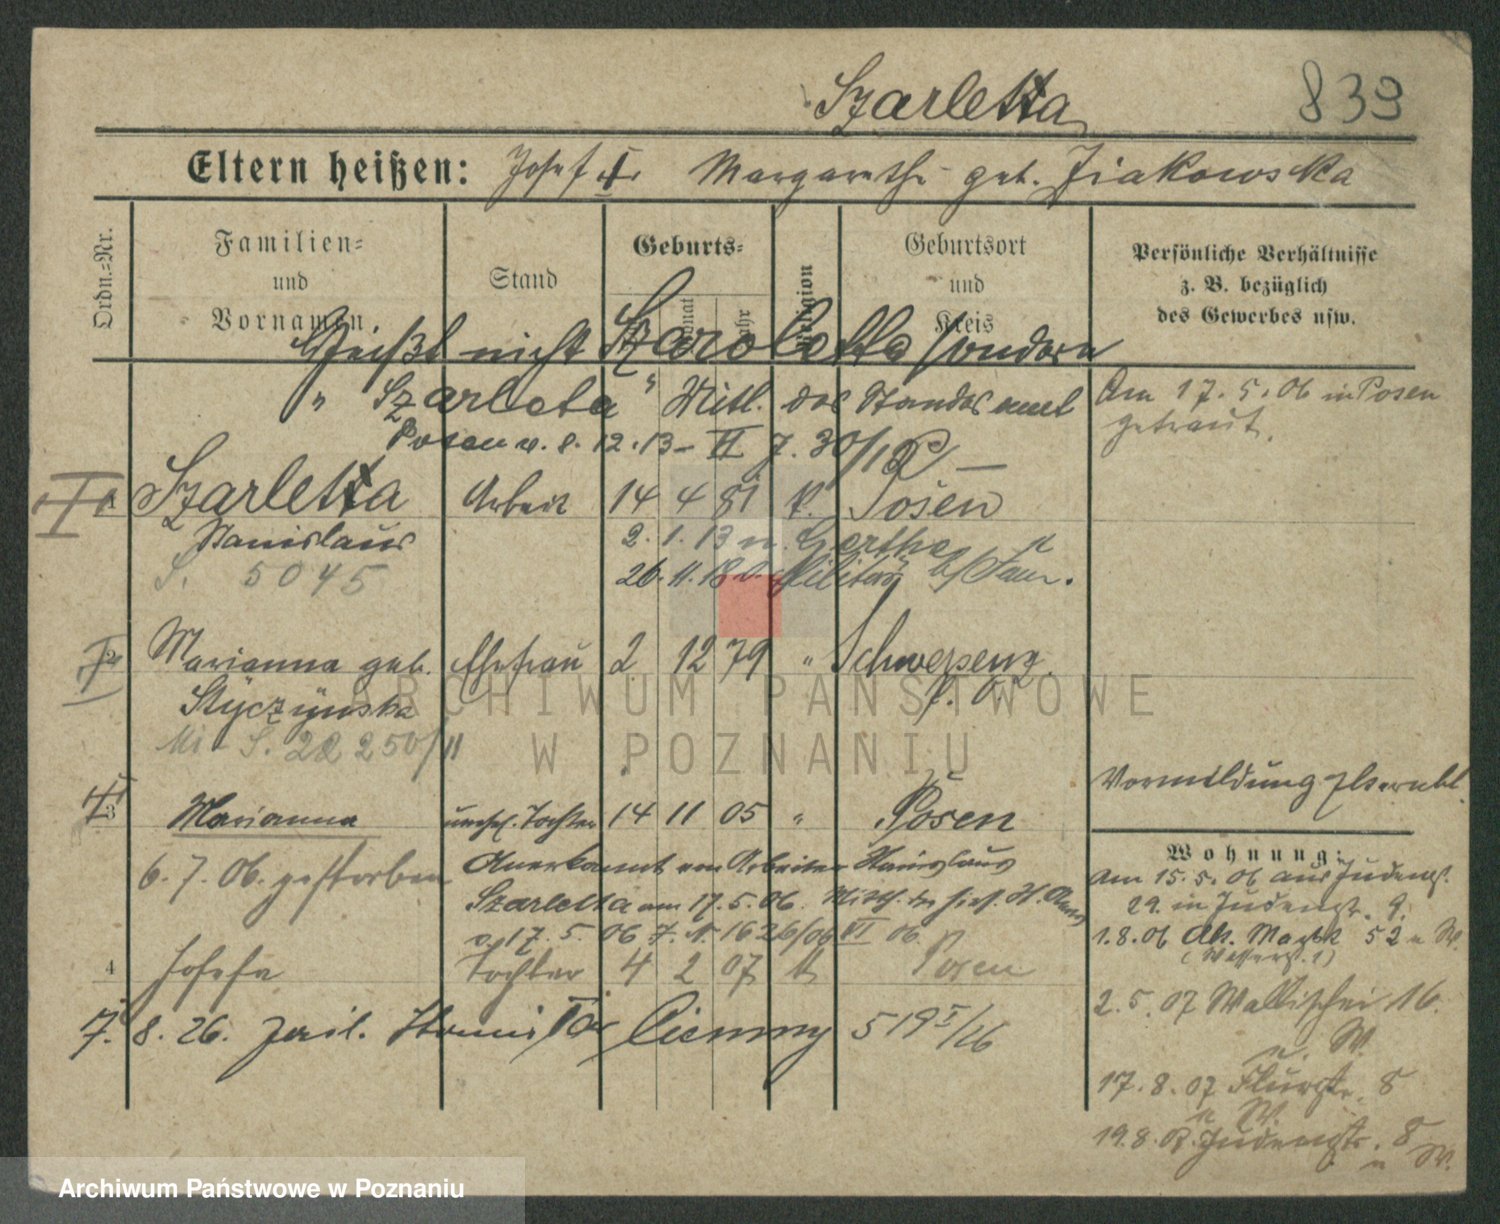 Szarletta 839
Eltern heißen: Josef u. Margarethe geb. Ziakowska
Ordn.=Nr.
Familien=
und
Vornamen
Stand
Geburts=
Monat
Jahr
Religion
Geburtsort
und
Kreis
Persönliche Verhältnisse
z. B. bezüglich
des Gewerbes usw.
Heißt nicht Szaroletta sondern
„ Szarleta" Mitl. des Standesamt
Posen v. 8.12.13 - VI 7. 30/12
Am 17.5.06 in Posen
getraut.
1 Szarletta Arbeit 14 4 81 k. Posen
Stanislaus 2.1.13 n. Gerthe
S. 5045 26.11.18 v. Militär
2 Marianna geb. Ehefrau 2 12 79 " Schwersenz
Styczynska
S. 22250/11
3 Marianna unehel. Tochter 14 11 05 " Posen
6.7.06. gestorben Anerkannt von Arbeiter Stanislaus
Szarletta am 17.5.06.
v. 17.5.06
4 Josefa Tochter 4 2 07 k Posen
7. 8. 26. Cienmny 519 I/26
Wohnung:
Am 15.5.06 aus Judenst.
29. in Judenstr. 9.
1.8.06 Alt. Markt 52 u W.
2.5.07 Wallischei 16.
u. W.
17.8.07 Flurstr. 8
u W.
19.8. Judenstr. 8
u W.
ARCHIWUM PAŃSTWOWE
W POZNANIU
Archiwum Państwowe w Poznaniu